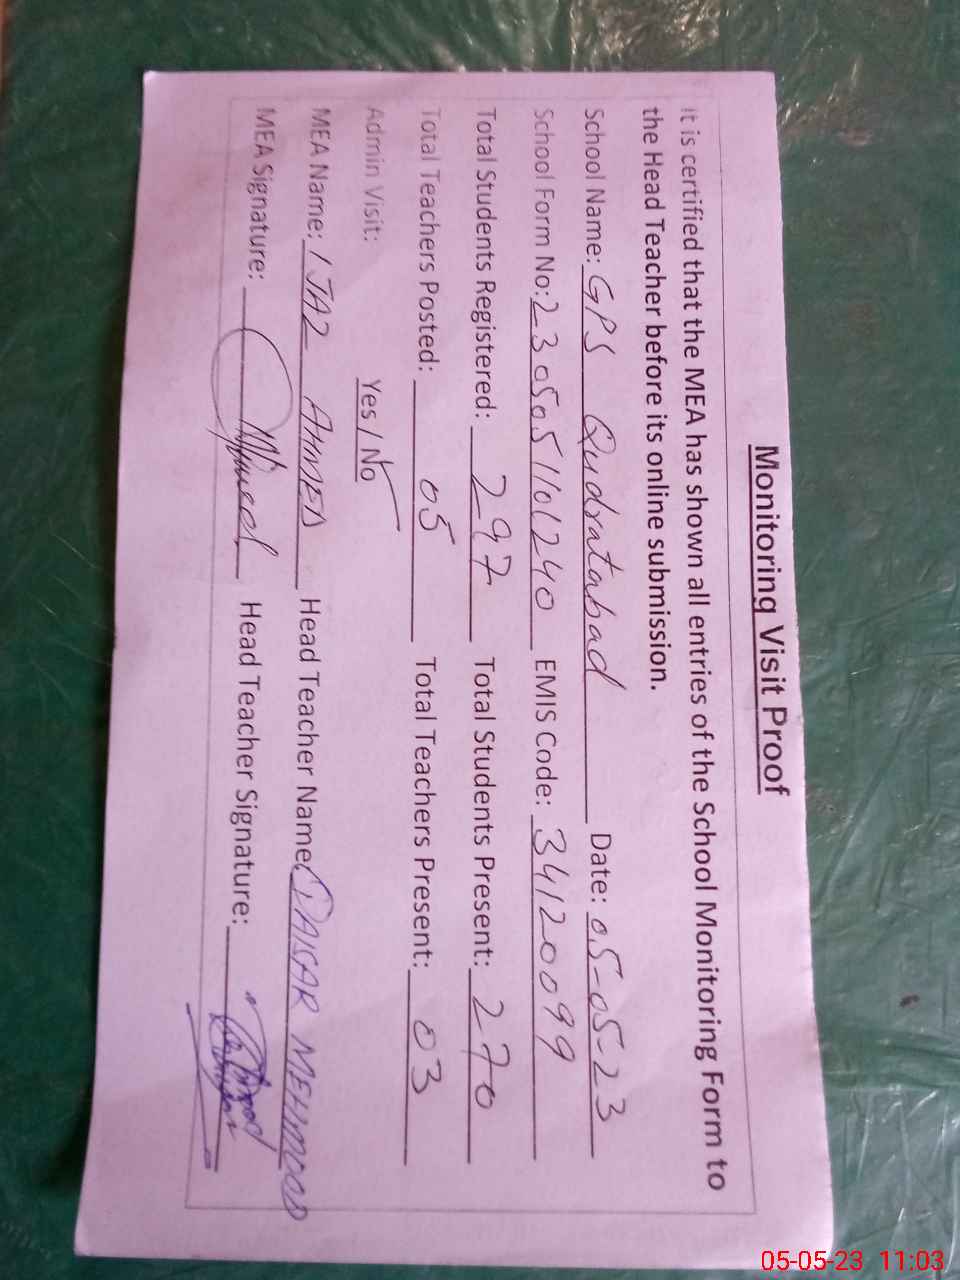 Monitoring Visit Proof
It is certified that the MEA has shown all entries of the School Monitoring Form to
the Head Teacher before its online submission.
School Name: GPS Qudratabad Date: 05-05-23
School Form No: 2305051101240 EMIS Code: 34120099
Total Students Registered: 297 Total Students Present: 270
Total Teachers Posted: 05 Total Teachers Present: 03
Admin Visit: Yes / No
MEA Name: IJAZ AHMED Head Teacher Name: QAISAR MEHMOOD
MEA Signature: Head Teacher Signature:
05-05-23 11:03